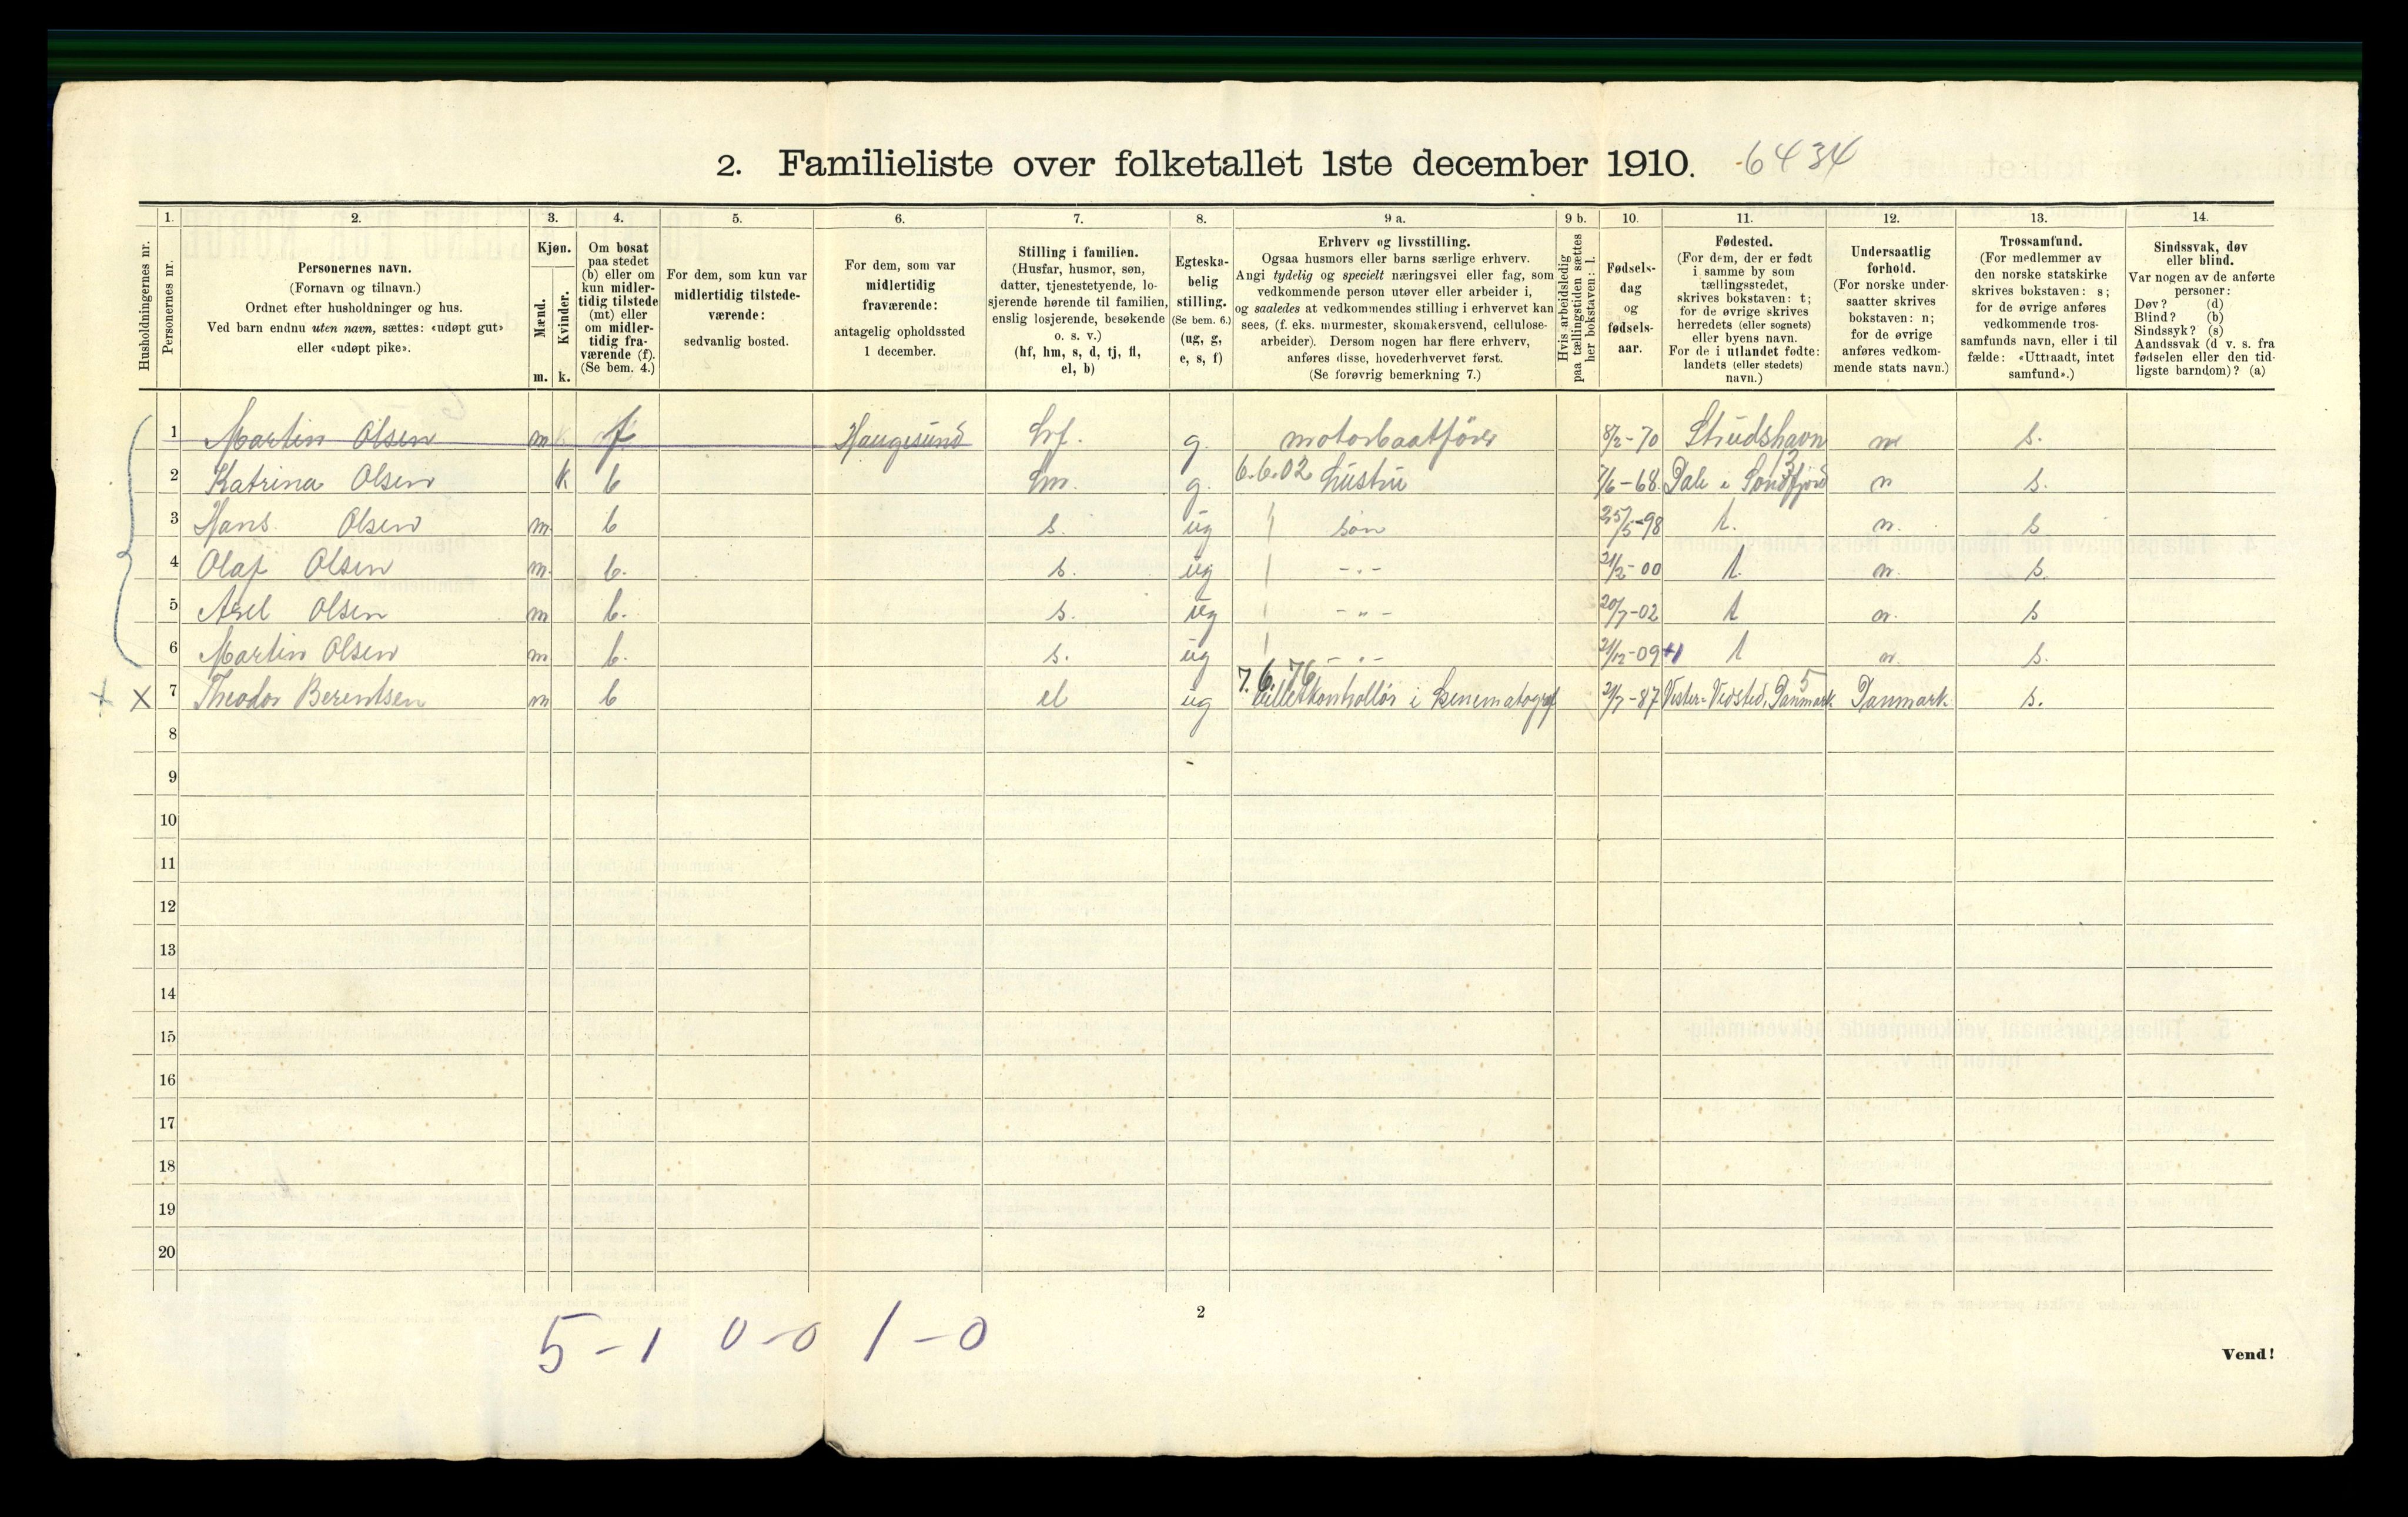 2. Familieliste over folketallet 1ste december 1910. 6434
Husholdningernes nr.
1.
Personernes nr.
2.
Personernes navn.
(Fornavn og tilnavn.)
Ordnet efter husholdninger og hus.
Ved barn endnu uten navn, sættes: «udøpt gut»
eller «udøpt pike».
3.
Kjøn.
Mænd.
Kvinder.
m. k.
4.
Om bosat
paa stedet
(b) eller om
kun midler-
tidig tilstede
(mt) eller
om midler-
tidig fra-
værende (f).
(Se bem. 4.)
5.
For dem, som kun var
midlertidig tilstede-
værende:
sedvanlig bosted.
6.
For dem, som var
midlertidig
fraværende:
antagelig opholdssted
1 december.
7.
Stilling i familien.
(Husfar, husmor, søn,
datter, tjenestetyende, lo-
sjerende hørende til familien,
enslig losjerende, besøkende
o. s. v.)
(hf, hm, s, d, tj, fl,
el, b)
8.
Egteska-
belig
stilling.
(Se bem. 6.)
(ug, g,
e, s, f)
9 a.
Erhverv og livsstilling.
Ogsaa husmors eller barns særlige erhverv.
Angi tydelig og specielt næringsvei eller fag, som
vedkommende person utøver eller arbeider i,
og saaledes at vedkommendes stilling i erhvervet kan
sees, (f. eks. murmester, skomakersvend, cellulose-
arbeider). Dersom nogen har flere erhverv,
anføres disse, hovederhvervet først.
(Se forøvrig bemerkning 7.)
9 b.
Hvis arbeidsledig
paa tællingstiden sættes
her bokstaven: l.
10.
Fødsels-
dag
og
fødsels-
aar.
11.
Fødested.
(For dem, der er født
i samme by som
tællingsstedet,
skrives bokstaven: t;
for de øvrige skrives
herredets (eller sognets)
eller byens navn.
For de i utlandet fødte:
landets (eller stedets)
navn.)
12.
Undersaatlig
forhold.
(For norske under-
saatter skrives
bokstaven: n;
for de øvrige
anføres vedkom-
mende stats navn.)
13.
Trossamfund.
(For medlemmer av
den norske statskirke
skrives bokstaven: s;
for de øvrige anføres
vedkommende tros-
samfunds navn, eller i til
fælde: «Uttraadt, intet
samfund».)
14.
Sindssvak, døv
eller blind.
Var nogen av de anførte
personer:
Døv? (d)
Blind? (b)
Sindssyk? (s)
Aandssvak (d v. s. fra
fødselen eller den tid-
ligste barndom)? (a)
1 Martin Olsen m f Haugesund hf. g. motorbaatfører 8/2-70 Strudshavn n s.
2 Katrina Olsen k b hm. g. 6.6.02 hustru 7/6-68 Dale i Søndfjord n s.
3 Hans Olsen m b s. ug søn 25/5-98 t. n. s
4 Olaf Olsen m. b. s. ug -"- 21/2-00 t. n. s.
5 Axel Olsen m b. s. ug -"- 20/7-02 t n. s
6 Martin Olsen m b. s. ug -"- 21/12-09 t n. s.
x X 7 Theodor Berentsen m b el ug 7.6.76 billetkontrollør i kinematograf 21/7-87 Vester-Vedsted, Danmark 5 Danmark s.
8
9
10
11
12
13
14
15
16
17
18
19
20
2
5-1 0-0 1-0
Vend!